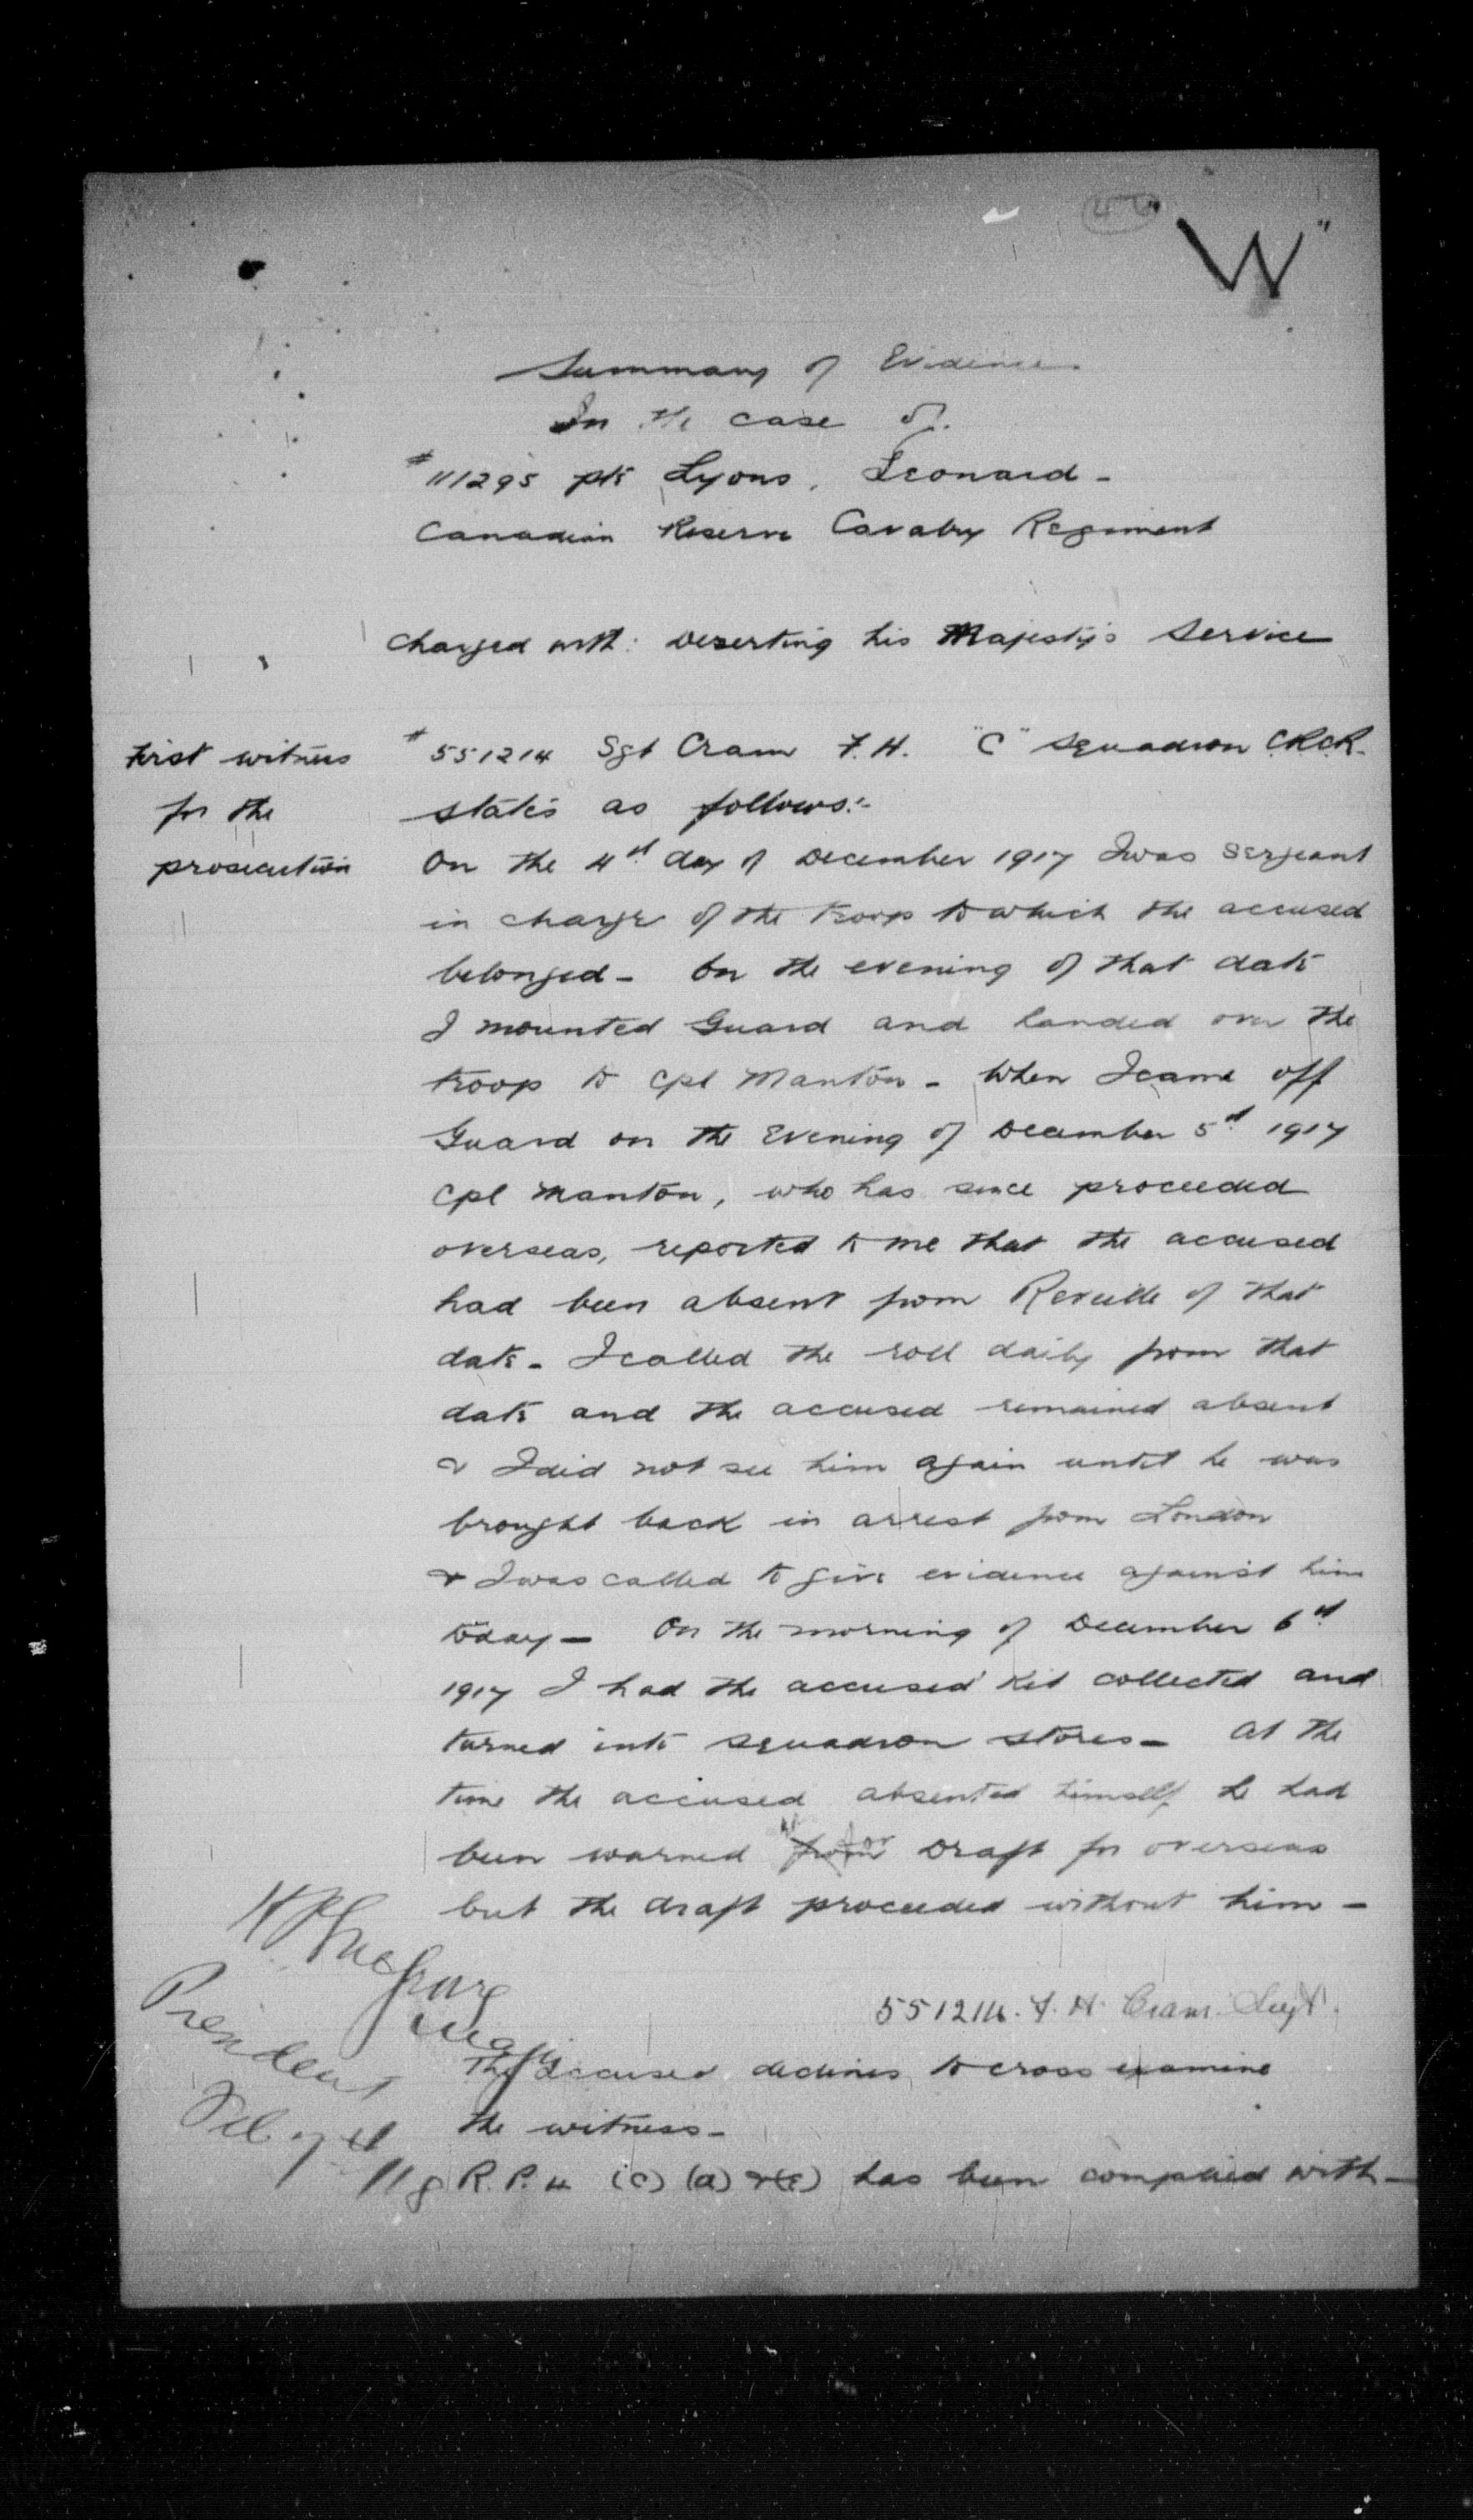 "W"
Summary of Evidence
In the case of.
#111295 pte Lyons, Leonard -
Canadian Reserve Cavalry Regiment
Charged with: Deserting his Majesty's Service
First witness
for the
prosecution
#551214 Sgt Cram F.H. "C" Squadron C.R.C.R.
states as follows:-
On the 4th day of December 1917 I was Sergeant
in charge of the troop to which the accused
belonged - On the evening of that date
I mounted Guard and handed over the
troop to Cpl Manton - When I came off
Guard on the Evening of December 5th 1917
Cpl Manton, who has since proceeded
overseas, reported to me that the accused
had been absent from Reveille of that
date - I called the roll daily from that
date and the accused remained absent
& I did not see him again until he was
brought back in arrest from London
& I was called to give evidence against him
today - On the morning of December 6th
1917 I had the accused' kit collected and
turned into squadron stores - At the
time the accused absented himself he had
been warned for Draft for overseas
but the draft proceeded without him -
551214. F. H. Cram. Sergt.
The accused declines to cross examine
the witness -
R.P. 4 (C) (D) & (E) has been complied with -
Major
President
Feb 7th/18